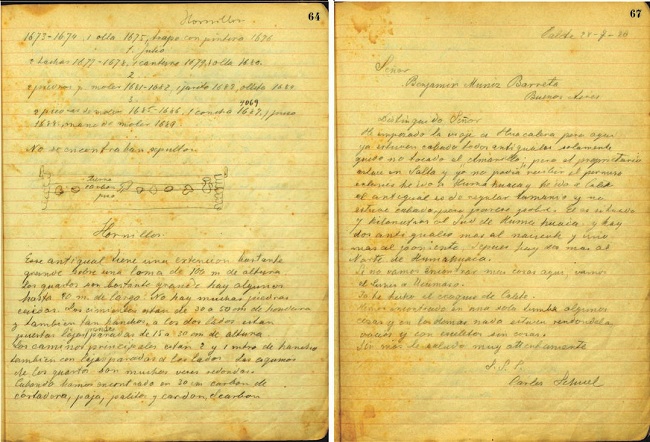 64
Hornillos
1673-1674, 1 olla 1675, trapo con pintura 1676
1. Julio
2 1677-1678, 1 cantaro 1679, olla 1680.
2.
2 piedras p. moler 1681-1682, 1 1683, ollita 1684
3
2 piedras de moler 1685-1686, 1 concha 1687, 1
4069
1688, mano de moler 1689
No se encontraban sepulcros
Hornillos
Este antigual tiene una extencion bastante
grande sobre una loma de 100 m de altura.
Los quartos son bastante grandes hay algunos
hasta de largo. No hay muchas piedras
caidas. Los cimientos estan de 30 a 50 cm de hondura
y tambien tan handos, a los dos lados estan
puestas lajas paradas de 10 a 50 cm de altura.
Los caminos principales estan 2 y 1 metro de hancho
tambien con lajas paradas a los lados. Las
de los quartos son muchas veces redondas.
Cabando hamos encontrado en 30 cm carbon de
cortadera, paja, palitos y cardon carbon
67
Salta, 25-7-
Señor
Benjamin Muniz Barreto
Buenos-Aires
Distinguido Señor
He empezado la viaje a Huacalera pero aqui
ya estuvieron cabado todos antiguales solamente
quedo no tocado el Amarillo; pero el proprietario
estuvo en Salta y yo no podia recibir el permiso
entonces he ido a Humahuaca y he ido a Calete
el antigual es de regular tamano y no
estuvo cabado, pero parece pobre. El es situado
7 kilometros al Sud de Humahuaca, y hay
dos antiguales mas al naciente y uno
mas al poniente. Despues hay dos mas al
Norte de Humahuaca.
Si no vamos encontrar mas cosas aqui, vamos
el lunes a
Yo he hecho el croquis de Calete.
encontrado en una sola tumba algunos
cosas y en los demas nada estuvieron
vacios y con sin cosas.
Sin mas le saludo muy attentamente
S.S.S.
Carlos